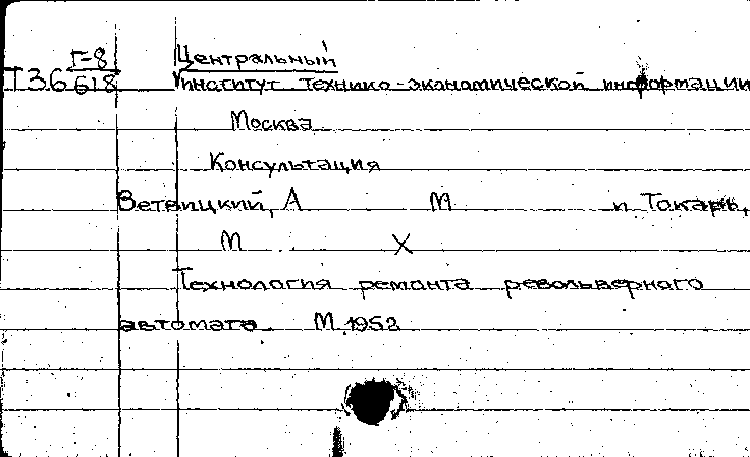 Г-8 Центральный
Т36 618 Институт технико-экономической информации
Москва
Консультация
Ветвицкий, А М и Токарь,
М Х
Технология ремонта револьверного
автомата М. 1953